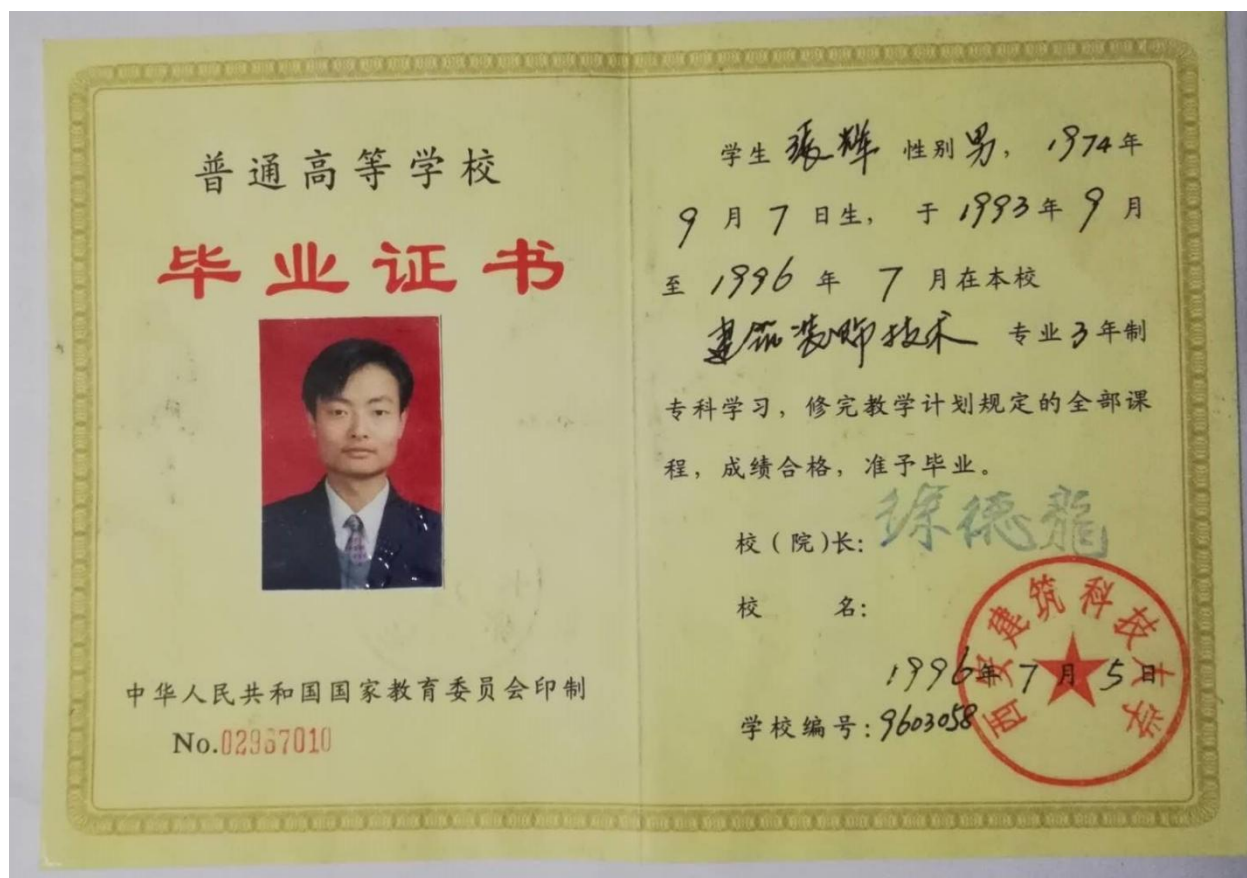 普通高等学校
毕业证书
中华人民共和国国家教育委员会印制
No.02967010
学生 张辉 性别 男, 1974年
9月7日生, 于1993年9月
至1996年7月在本校
建筑装饰技术 专业3年制
专科学习，修完教学计划规定的全部课
程，成绩合格，准予毕业。
校（院）长: 徐德龍
校 名:
西安建筑科技大学
1996年7月5日
学校编号: 9603058